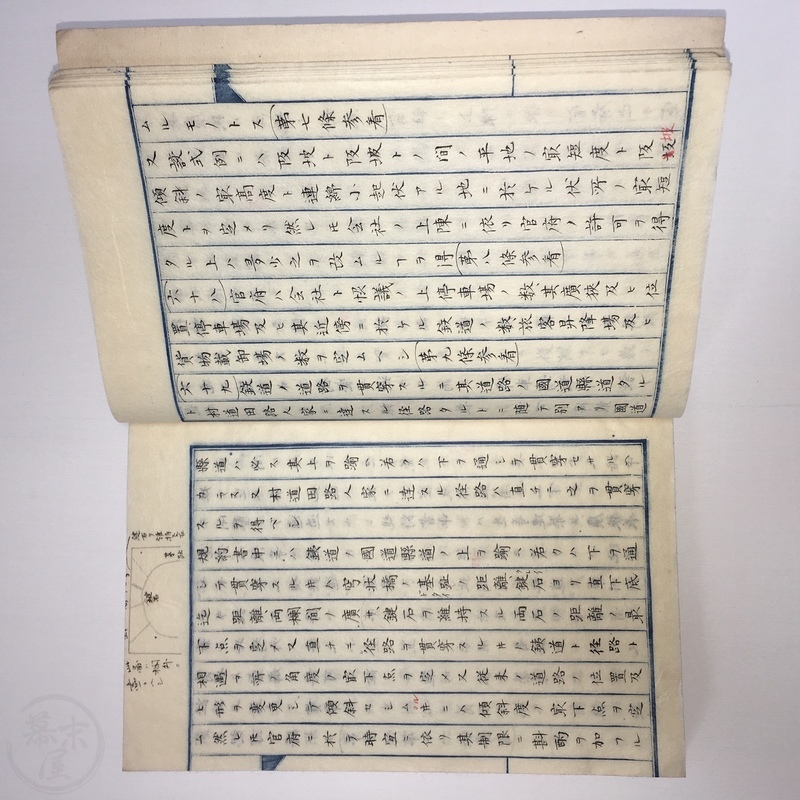 ムルモノトス(第七條参看)
又設式例ニハ阪坡ト阪坡トノ間ノ平地ノ最短度ト阪坡
傾斜ノ最高度ト連綿小起伏アル地ニ於ケル伏所ノ最短
度トヲ定メリ然レ𪜈会社ノ上陳ニ依リ官府ノ許可ヲ得
タル上ハ多少之ヲ改ムルヿヲ得(第八條参看)
(六十八)官府ハ会社ト協議ノ上停車場ノ数其廣狭及ヒ位
置停車場及ヒ其近傍ニ於ケル鉄道ノ数旅客昇降場及ヒ
貨物載卸場ノ数ヲ定ムヘシ(第九條参看)
(六十九)鉄道ノ道路ヲ貫穿スルニ其道路ノ國道縣道タル
ト村道田路人家ニ達スル径路タルトニ随テ別アリ國道
縣道ハ必ス其上ヲ踰ヘ若クハ下ヲ通シテ貫穿セサルヘ
カラス又村道田路人家ニ達スル径路ハ直チニ之ヲ貫穿
スルヲ得ベシ
規約書中ニハ鉄道ノ國道縣道ノ上ヲ踰ヘ若クハ下ヲ通
シテ貫穿スルキハ穹状橋ノ基趾ノ距離鍵石ヨリ直下底
迄ノ距離両欄間ノ廣サ鍵石ヲ維持スル両石ノ距離ノ最
下点ヲ定メ又直チニ径路ヲ貫穿スルキハ鉄道ト径路ト
相遇フ所ノ角度ノ最下点ヲ定メ又従来ノ道路ノ位置及
ヒ形ヲ変更シテ傾斜セシムルキハ傾斜度ノ最下点ヲ定
ム然レ𪜈官府ニ於テ時宜ニ依リ其制限ニ斟酌ヲ加フル
基趾
鍵石
幕末屋